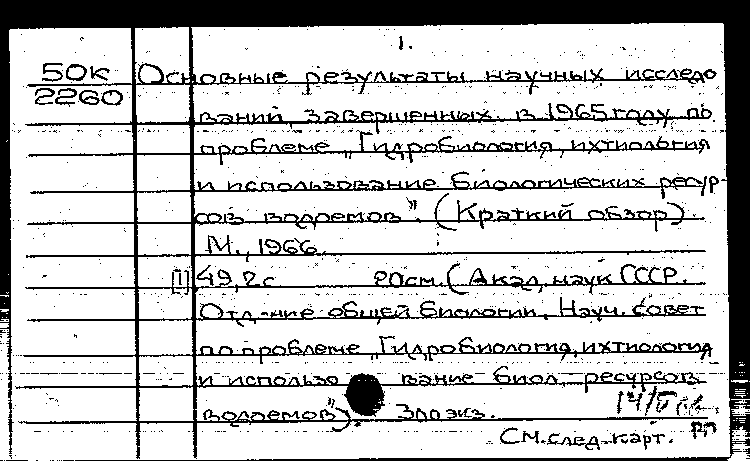 1.
50к
2260
Основные результаты научных исследо
ваний, завершенных в 1965 году по
проблеме „Гидробиология, ихтиология
и использование биологических ресур-
сов водоемов". (Краткий обзор).
М., 1966.
[1] 49, 2 с 20 см. (Акад. наук СССР.
Отд-ние общей биологии. Науч. совет
по проблеме „Гидробиология, ихтиология
и использо вание биол. ресурсов
водоемов"). экз.
См. след. карт.